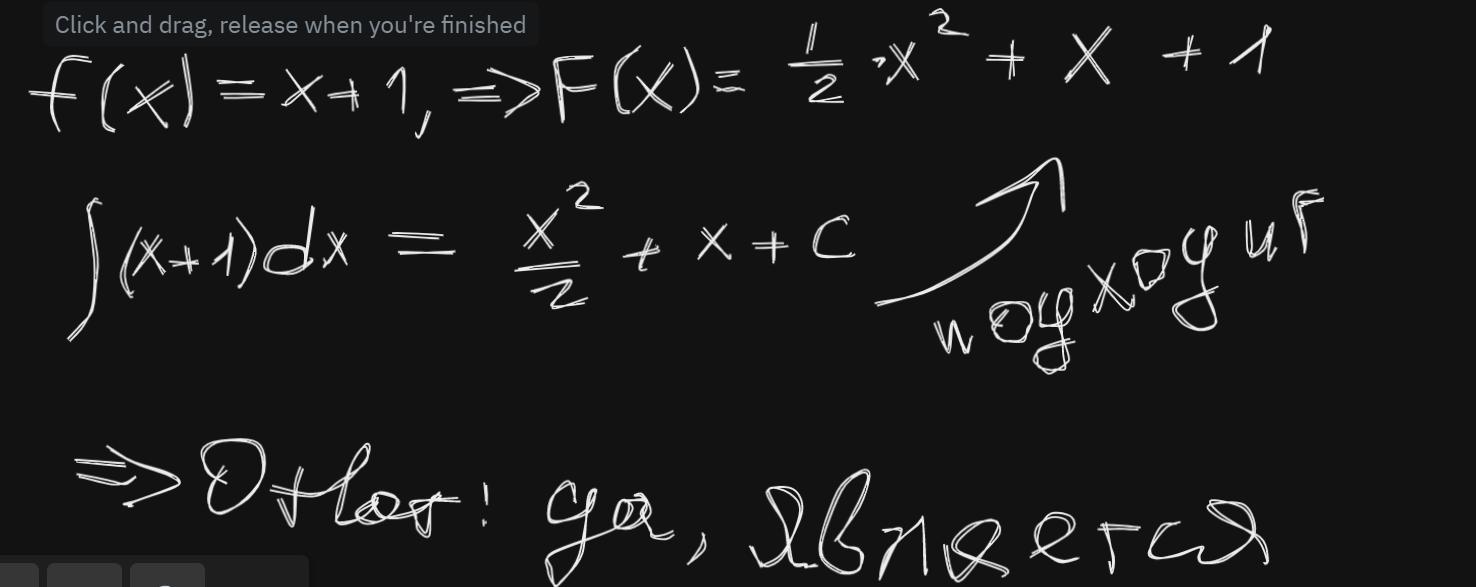 Click and drag, release when you're finished
f(x) = x+1, => F(x) = 1/2 · x² + x + 1
∫(x+1)dx = x²/2 + x + C
подходит
=> Ответ: да, является